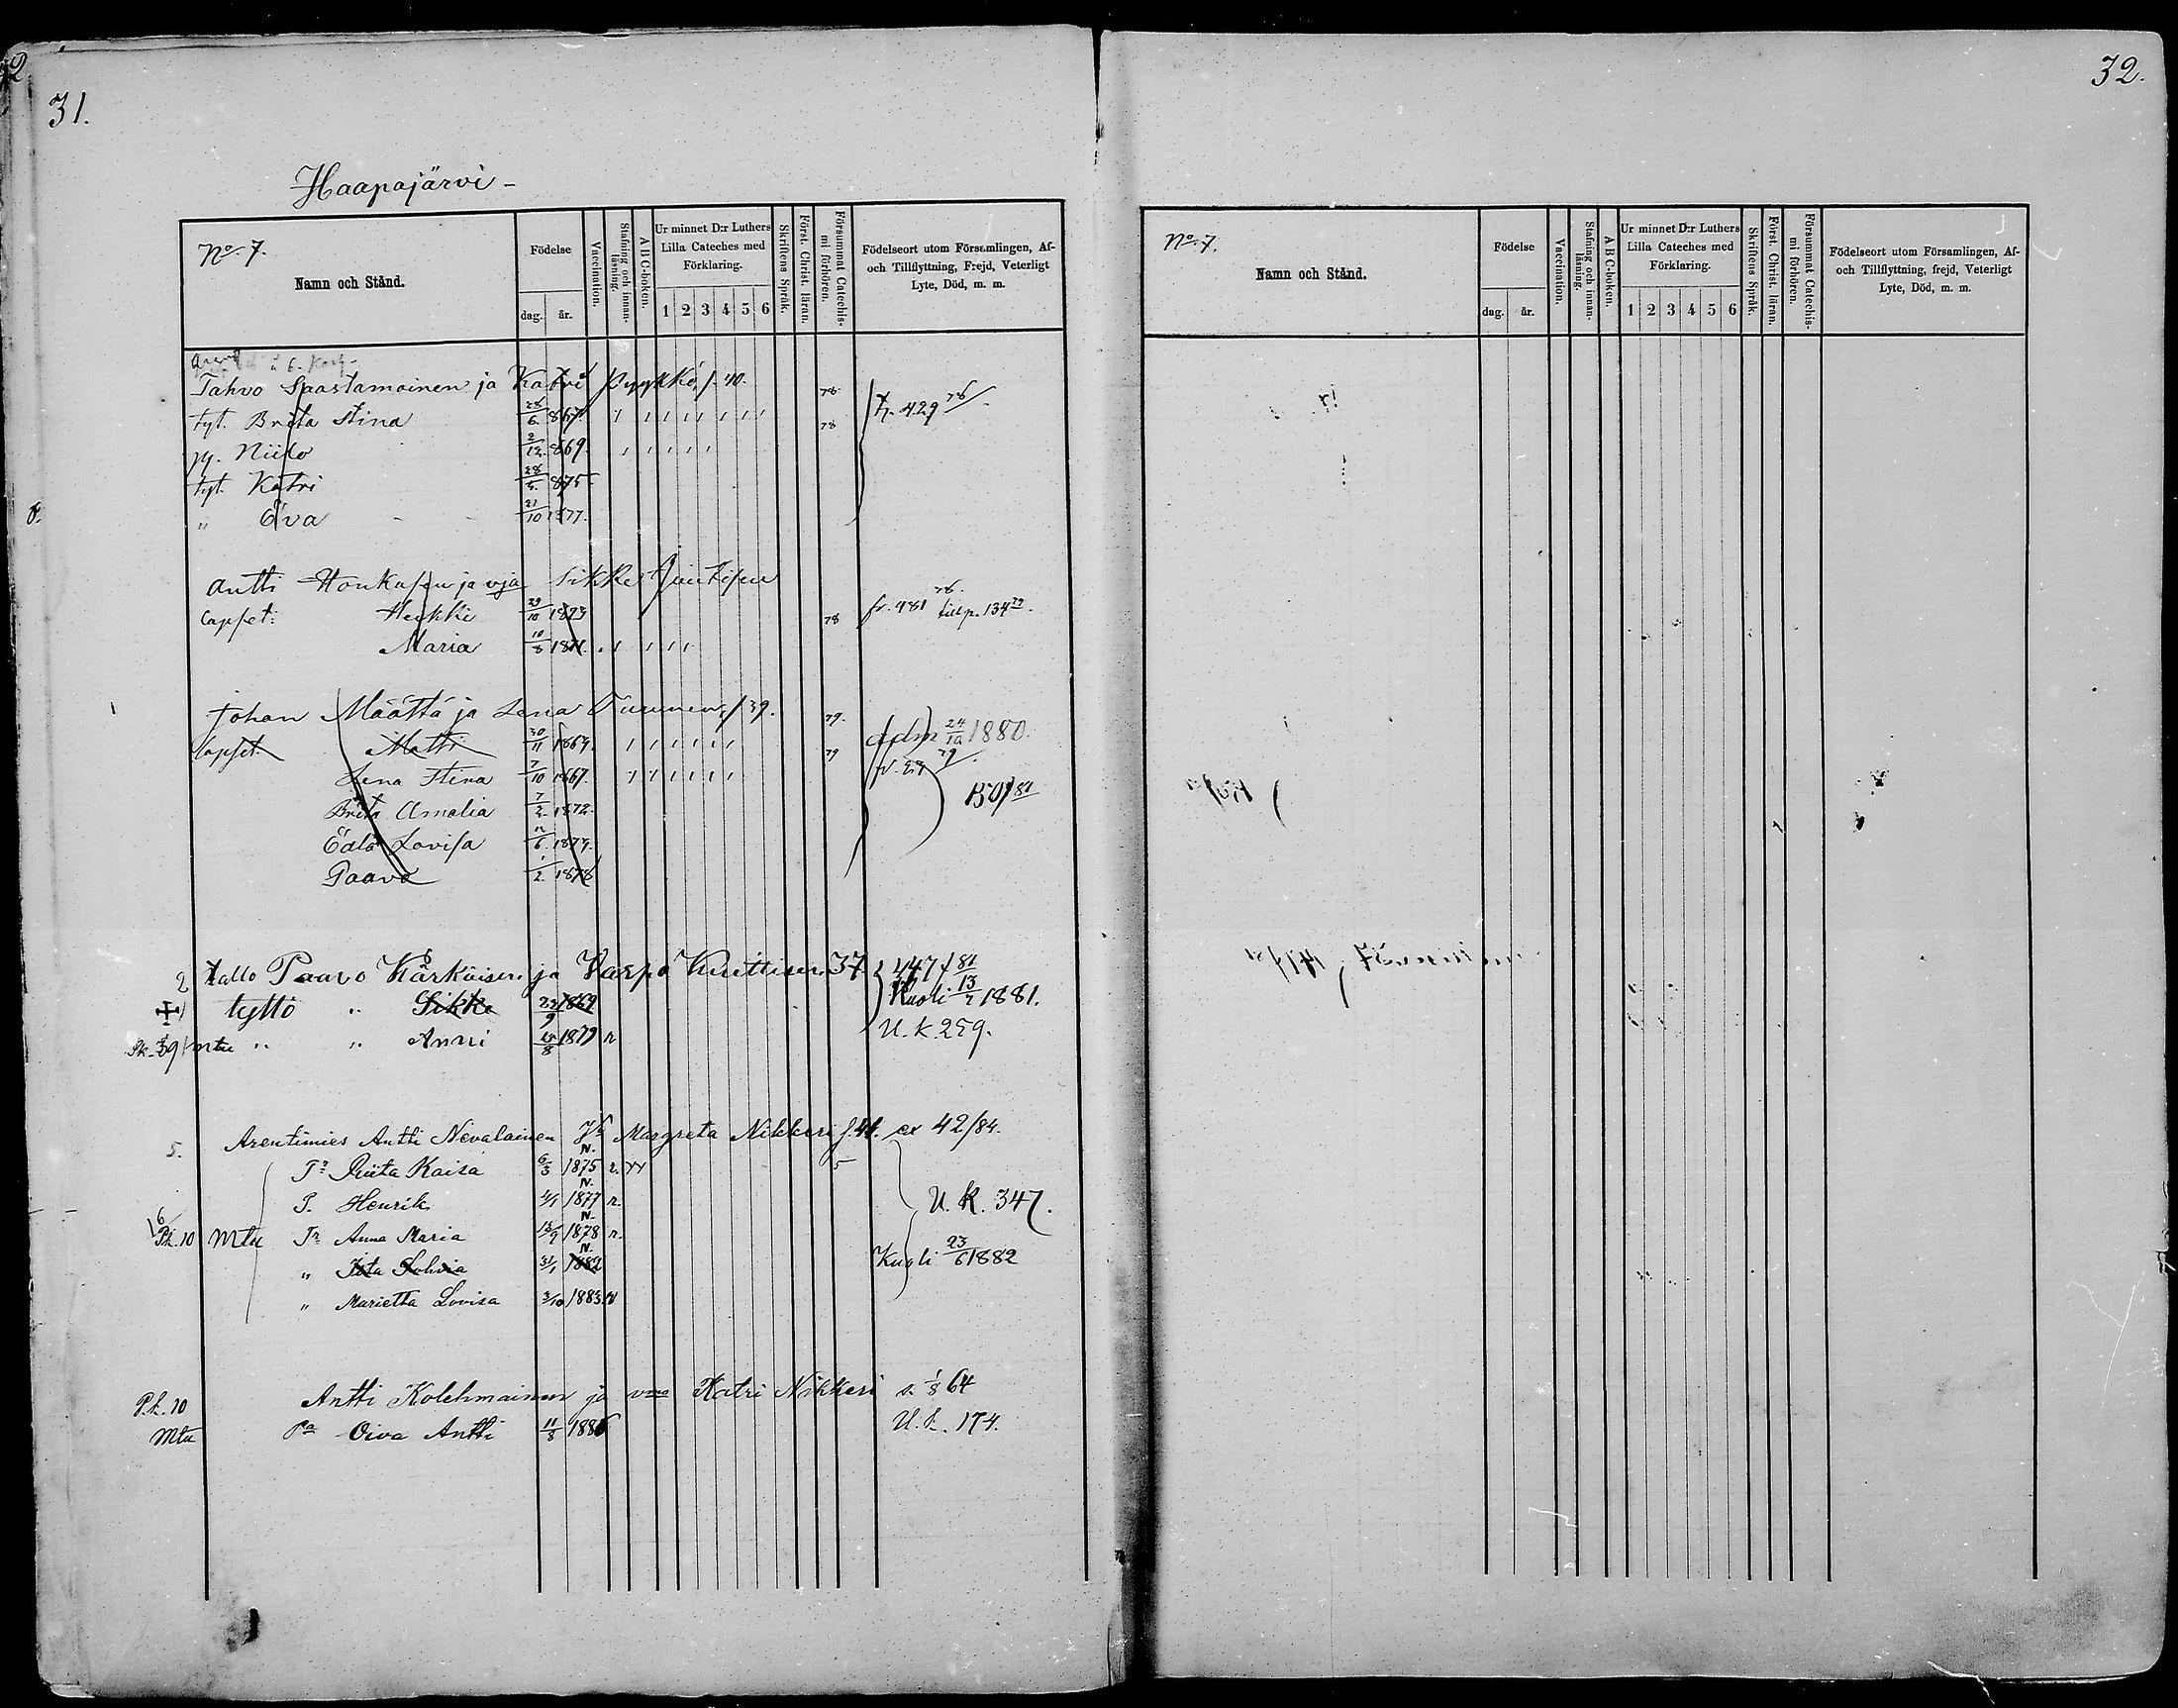 31.
Haapajärvi -
No. 7.
Namn och Stånd.
Födelse
dag. år.
Vaccination.
Stafning och innanläsning.
A B C-boken.
Ur minnet D:r Luthers Lilla Cateches med Förklaring.
1 2 3 4 5 6
Skriftens Språk.
Först. Christ. läran.
Försummat Catechismi förhören.
Födelseort utom Församlingen, Af- och Tillflyttning, Frejd, Veterligt Lyte, Död, m. m.
Tahvo Saastamoinen ja Katri Pyykkö, s. 40. 78
tyt. Brita Stina 28/6 867. 78 fr. 429 78
pj. Niilo 2/12 869.
tyt. Katri 28/5 875
" Eva 21/10 1877.
Antti Honkasen ja vja Sikke
Lapset: Heikki 29/10 1873 78 fr. 981 78. till p. 134 79.
Maria 10/8 1871.
Johan Määttä ja Lena Turunen, s/39. 79.
Lapset Matti 30/11 1864. 79 24/10 1880.
Lena Stina 7/10 1867. fr. 29 79
Brita Amalia 7/2 1872. 150/81
Eda Lovisa 6. 1874.
Paavo 1/2 1878
2 tallo Paavo Kärkäisen ja Varpa Kuittisen 37. 447/81
tyttö " Sikke 23/9 1869 Kuoli 13/2 1881.
Pk. 39 mtu " " Anni 15/8 1879 r U. k. 259.
5. Arentimies Antti Nevalainen Margreta Nikkeri s. 41. ex 42/84.
Tr Riita Kaisa 6/3 1875 r. 5
P. Henrik 4/1 1877 r. U. K. 347.
Pk. 10 Mtu Tr Anna Maria 15/9 1878 r.
" Iita Sohvia 31/1 1882 Kuoli 23/6 1882
" Marietta Lovisa 3/10 1883.
P.k. 10 Antti Kolehmainen ja vmo Katri Nikkeri s. 1/8 64
Mtu Pa Oiva Antti 11/8 1886 U. k. 174.
32.
No. 7.
Namn och Stånd.
Födelse
dag. år.
Vaccination.
Stafning och innanläsning.
A B C-boken.
Ur minnet D:r Luthers Lilla Cateches med Förklaring.
1 2 3 4 5 6
Skriftens Språk.
Först. Christ. läran.
Försummat Catechismi förhören.
Födelseort utom Församlingen, Af- och Tillflyttning, frejd, Veterligt Lyte, Död, m. m.